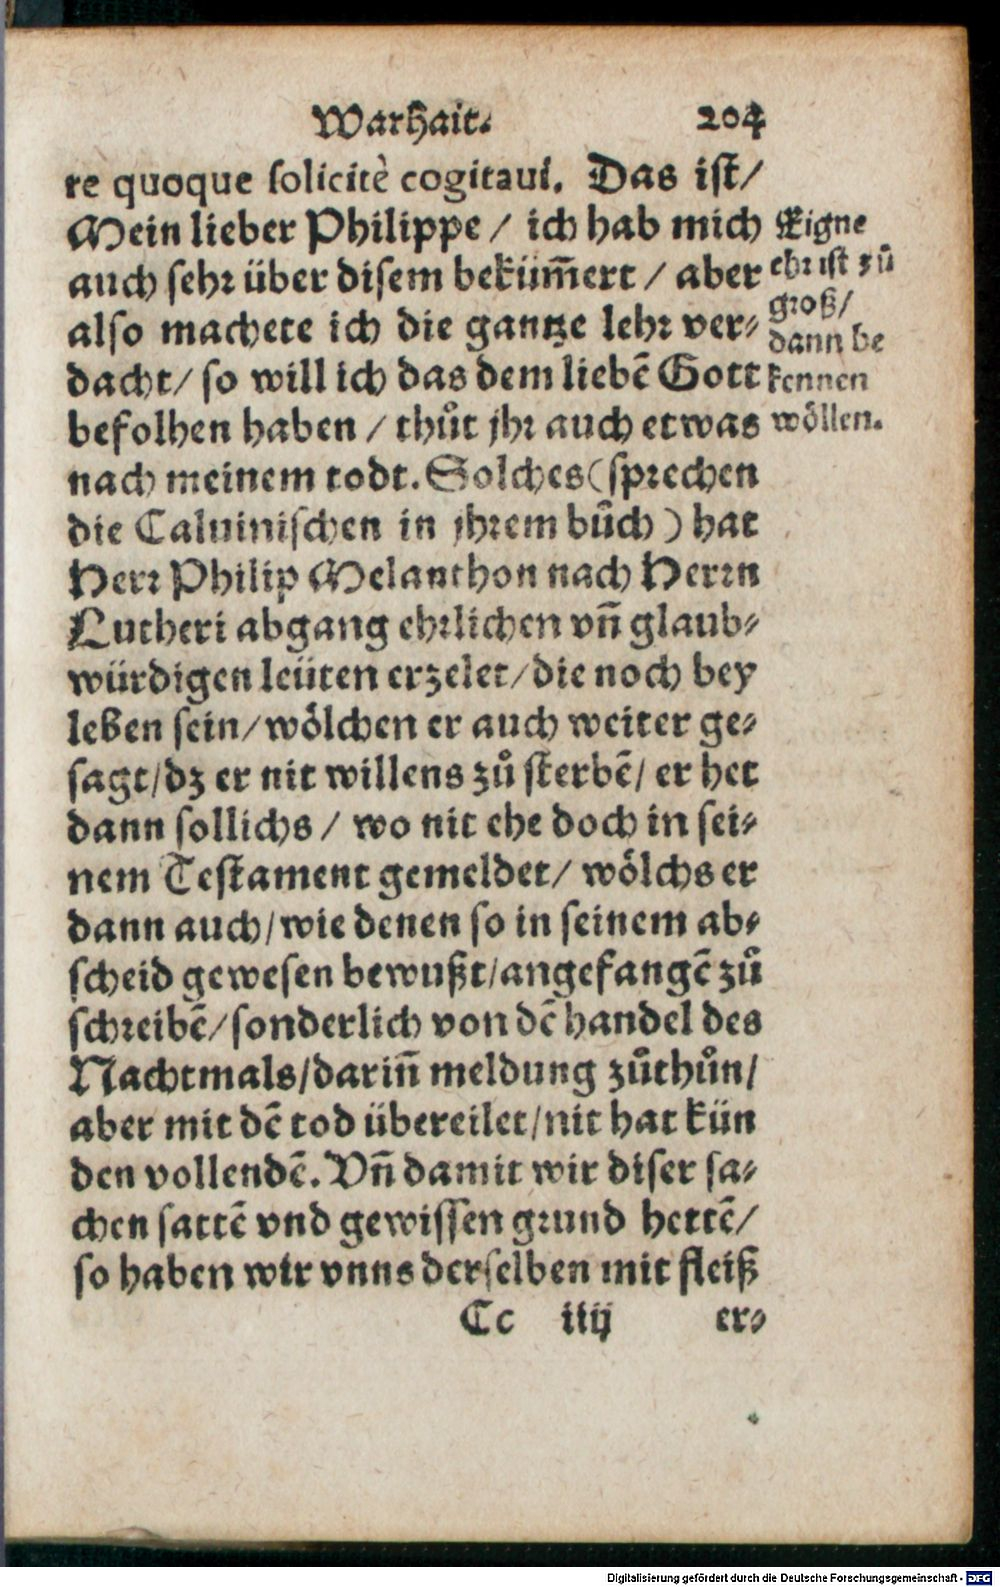 Warhait. 204
re quoque solicitè cogitaui. Das ist/
Mein lieber Philippe / ich hab mich
auch sehr über disem beküm̃ert / aber
also machete ich die gantze lehr ver-
dacht/ so will ich das dem liebẽ Gott
befolhen haben / thůt jhr auch etwas
nach meinem todt. Solches (sprechen
die Caluinischen in jhrem bůch) hat
Herr Philip Melanthon nach Herrn
Lutheri abgang ehrlichen vñ glaub-
würdigen leüten erzelet/ die noch bey
leben sein/ wölchen er auch weiter ge-
sagt/ dz er nit willens zů sterbẽ/ er het
dann sollichs / wo nit ehe doch in sei-
nem Testament gemeldet/ wölchs er
dann auch/ wie denen so in seinem ab-
scheid gewesen bewußt/ angefangẽ zů
schreibẽ/ sonderlich von dẽ handel des
Nachtmals/ dariñ meldung zůthůn/
aber mit dẽ tod übereilet/ nit hat kün
den vollendẽ. Vñ damit wir diser sa-
chen sattẽ vnd gewissen grund hettẽ/
so haben wir vnns derselben mit fleiß
Cc iiij er-
Eigne
ehr ist zů
groß/
dann be
kennen
wöllen.
Digitalisierung gefördert durch die Deutsche Forschungsgemeinschaft - DFG